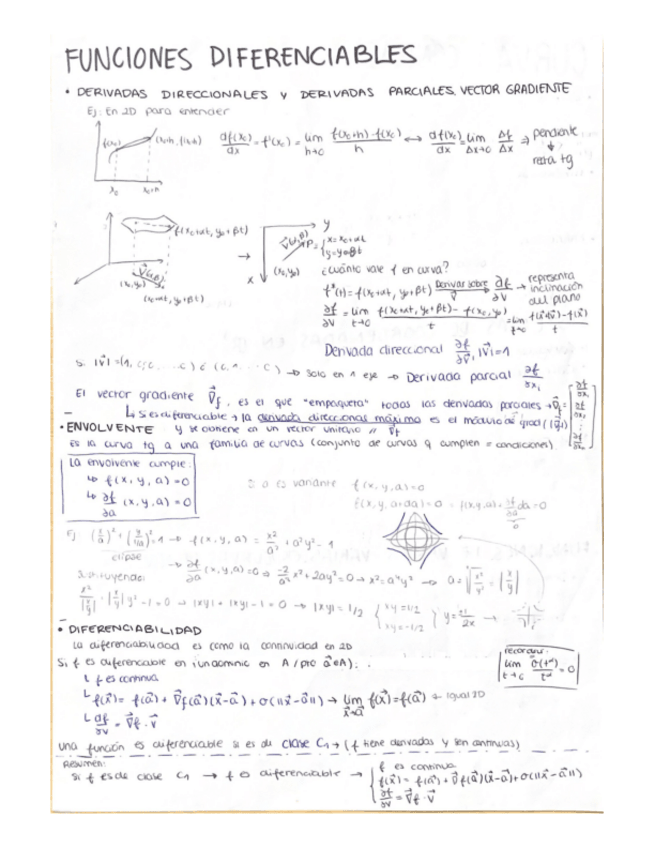 FUNCIONES DIFERENCIABLES
• DERIVADAS DIRECCIONALES Y DERIVADAS PARCIALES. VECTOR GRADIENTE
Ej: En 2D para entender
f(x₀) (x₀+h, f(x₀+h)) x₀ x₀+h
df(x₀)/dx = f'(x₀) = lim h→0 f(x₀+h)-f(x₀)/h ↔ df(x₀)/dx = lim Δx→0 Δf/Δx ⇒ pendiente ↓ recta tg
f(x₀+αt, y₀+βt)
(x₀+αt, y₀+βt)
→ y x (x₀,y₀) { x=x₀+αt y=y₀+βt
¿Cuánto vale f en curva?
f*(t) = f(x₀+αt, y₀+βt) Derivar sobre v⃗ → ∂f/∂V → representa inclinación del plano
∂f/∂V = lim t→0 f(x₀+αt, y₀+βt) - f(x₀,y₀)/t = lim t→0
Derivada direccional ∂f/∂v⃗, |V⃗|=1
→ solo en 1 eje → Derivada parcial ∂f/∂xᵢ
El vector gradiente ∇⃗f, es el que "empaqueta" todas las derivadas parciales → ∇⃗f =
↳ Si es diferenciable → la derivada direccional máxima es el módulo de grad (|∇⃗f|)
y se obtiene en un vector unitario // ∇⃗f
• ENVOLVENTE
Es la curva tg a una familia de curvas (conjunto de curvas q cumplen = condiciones)
La envolvente cumple:
↳ f(x, y, a) = 0
↳ ∂f/∂a (x, y, a) = 0
Si a es variante f(x, y, a) = 0
f(x, y, a+da) = 0 = f(x,y,a) + ∂f/∂a da = 0
Ej (x/a)² + (y/1/a)² = 1 → f(x, y, a) = x²/a² + a²y² - 1
elipse
→ ∂f/∂a (x, y, a) = 0 → -2/a³ x² + 2ay² = 0 → x² = a⁴y² →
Sustituyendo:
→ |xy| + |xy| - 1 = 0 → |xy| = 1/2 { xy = 1/2 xy = -1/2 } y = ±1/2x →
• DIFERENCIABILIDAD
La diferenciabilidad es como la continuidad en 2D
Si f es diferenciable en :
↳ f es continua
↳ f(x⃗) = f(a⃗) + ∇⃗f(a⃗)(x⃗-a⃗) + σ(||x⃗-a⃗||) → lim x⃗→a⃗ f(x⃗) = f(a⃗) ← igual 2D
↳ ∂f/∂v = ∇⃗f · v⃗
recordar:
lim t→0 = 0
una función es diferenciable si es de clase C₁ → (f tiene derivadas y son continuas)
Resumen:
Si f es de clase C₁ → f es diferenciable → { f es continua
f(x⃗) = f(a⃗) + ∇⃗f(a⃗)(x⃗-a⃗) + σ(||x⃗-a⃗||)
∂f/∂v = ∇⃗f · v⃗